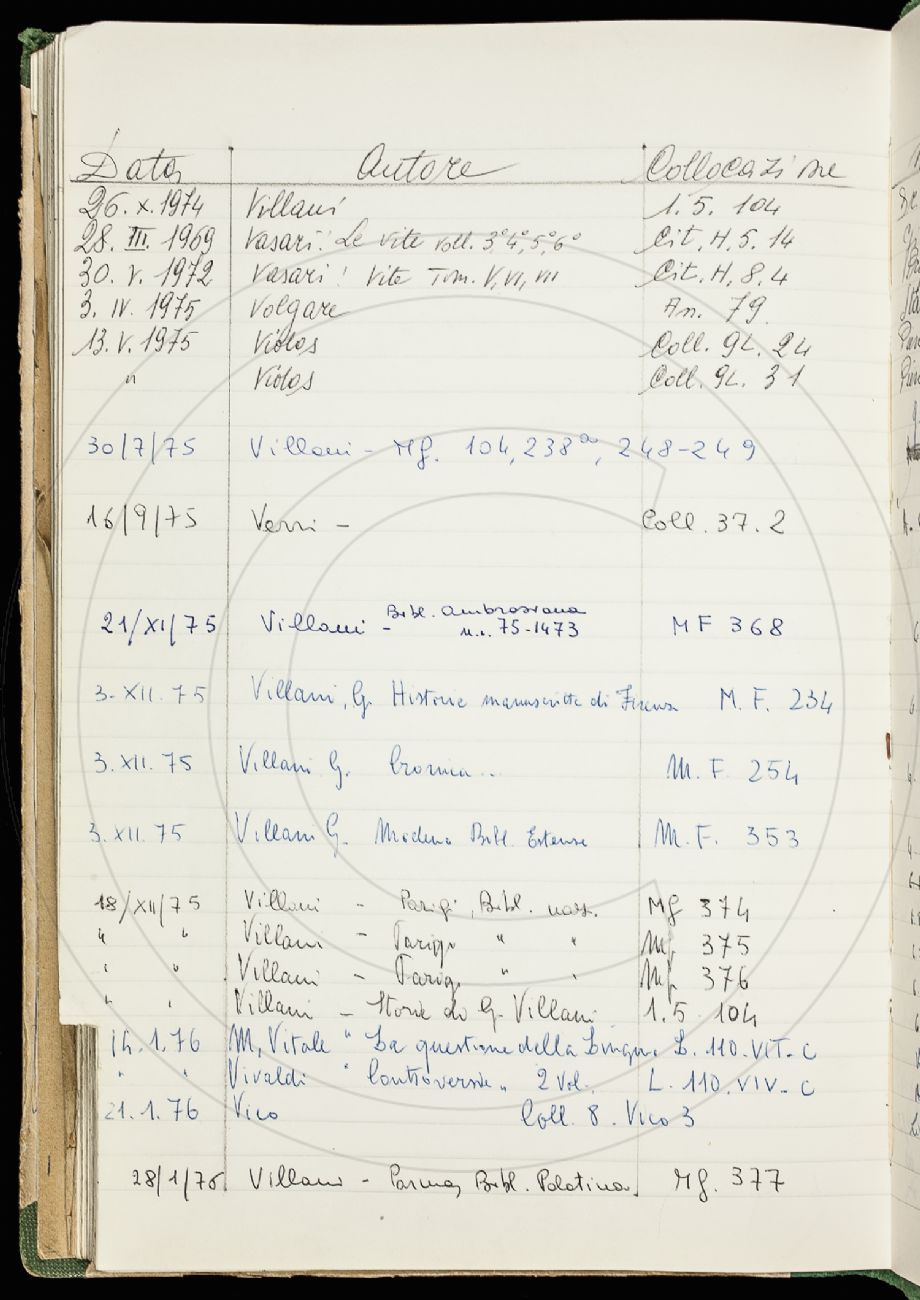 Data Autore Collocazione
26. X. 1974 Villani 1. 5. 104
28. III. 1969 Vasari: Le vite voll. 3° 4°, 5°, 6° Cit. H. 5. 14
30. V. 1972 Vasari: Vite Tom. V, VI, VII Cit. H. 8. 4
3. IV. 1975 Volgare An. 79
13. V. 1975 Coll. 9L. 24
" Coll. 9L. 31
30/7/75 Villani - Mf. 104, 238 248-249
16/9/75 Verri - Coll. 37. 2
21/XI/75 Villani - Bibl. Ambrosiana MF 368
75-1473
3. XII. 75 Villani, G. Historie manuscritte di Firenze M. F. 234
3. XII. 75 Villani G. Cronica .. M. F. 254
3. XII. 75 Villani G. Modena Bibl. Estense M. F. 353
18/XII/75 Villani - Parigi, Bibl. naz. Mf 374
" " Villani - Parigi " " Mf. 375
" " Villani - Parigi " " Mf. 376
" " Villani - Storie di G. Villani 1. 5. 104
14. 1. 76 M. Vitale " La questione della lingua L. 110. VIT. C
" " Vivaldi " Controversie " 2 vol. L. 110. VIV. C
21. 1. 76 Vico Coll. 8. Vico 3
28/1/76 Villani - Parma, Bibl. Palatina Mf. 377